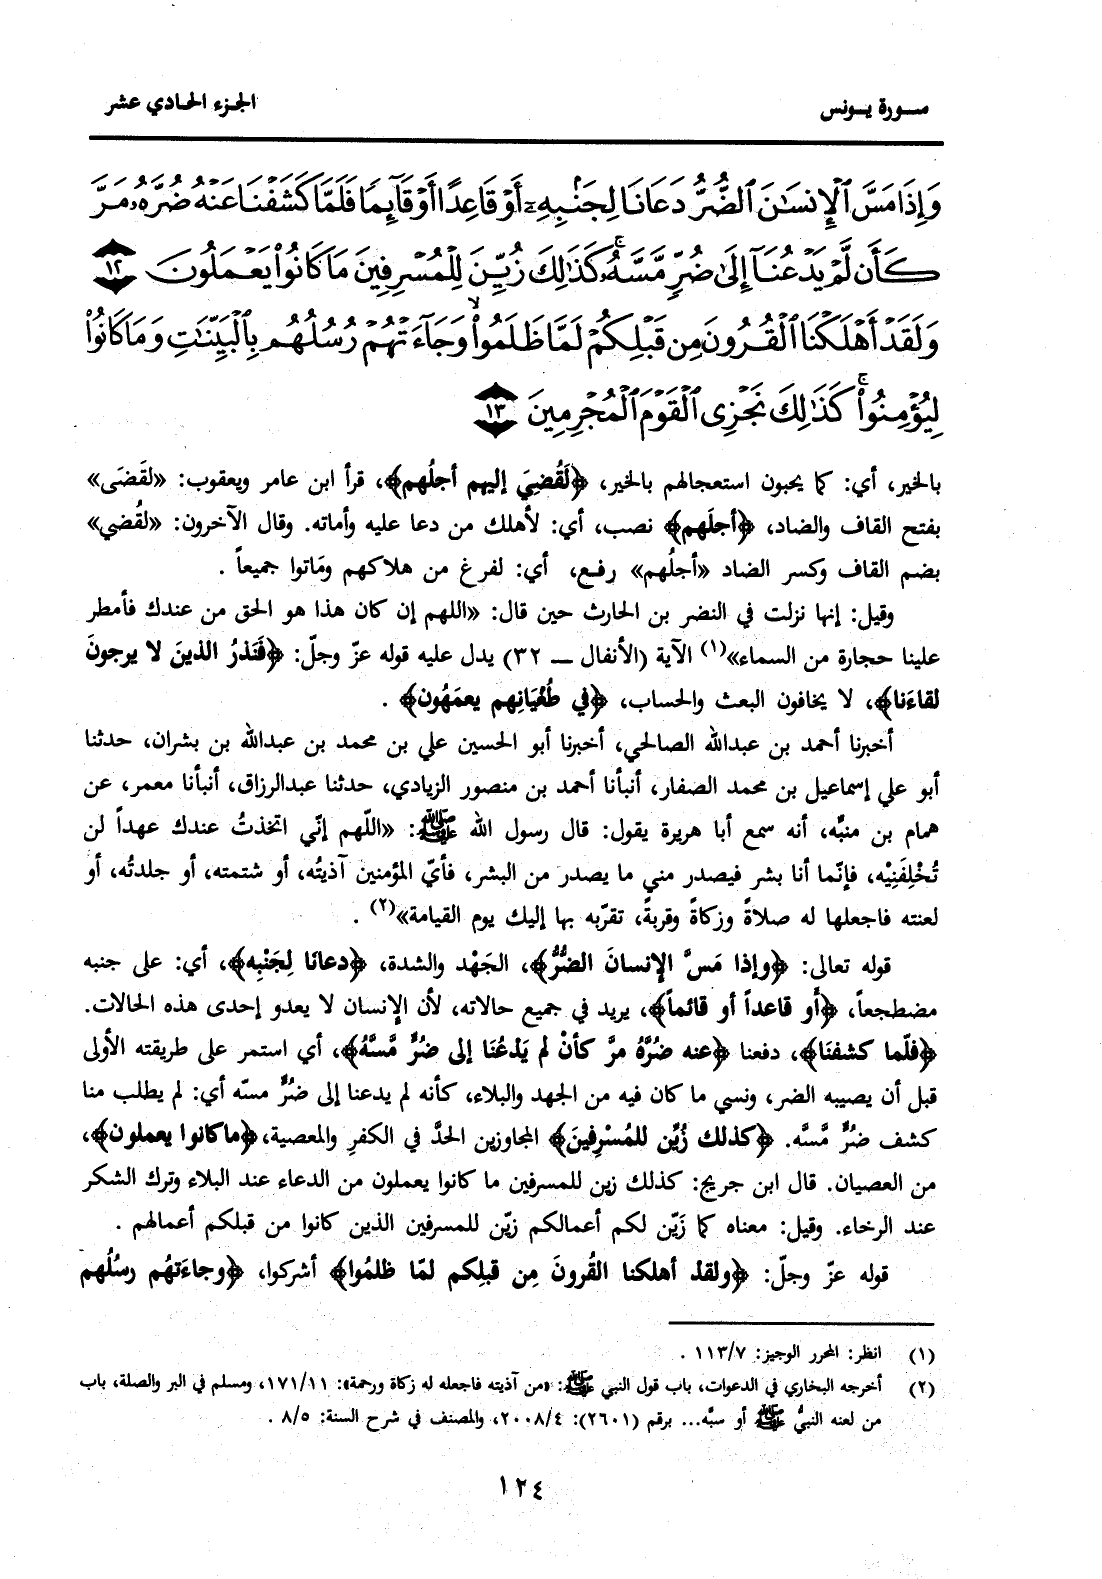 سورة يونس
الجزء الحادي عشر
وَإِذَا مَسَّ ٱلْإِنسَـٰنَ ٱلضُّرُّ دَعَانَا لِجَنۢبِهِۦٓ أَوْ قَاعِدًا أَوْ قَآئِمًا فَلَمَّا كَشَفْنَا عَنْهُ ضُرَّهُۥ مَرَّ
كَأَن لَّمْ يَدْعُنَآ إِلَىٰ ضُرٍّ مَّسَّهُۥ ۚ كَذَٰلِكَ زُيِّنَ لِلْمُسْرِفِينَ مَا كَانُوا۟ يَعْمَلُونَ ١٢
وَلَقَدْ أَهْلَكْنَا ٱلْقُرُونَ مِن قَبْلِكُمْ لَمَّا ظَلَمُوا۟ ۙ وَجَآءَتْهُمْ رُسُلُهُم بِٱلْبَيِّنَـٰتِ وَمَا كَانُوا۟
لِيُؤْمِنُوا۟ ۚ كَذَٰلِكَ نَجْزِى ٱلْقَوْمَ ٱلْمُجْرِمِينَ ١٣
بالخير، أي: كما يحبون استعجالهم بالخير، ﴿لَقُضِيَ إليهم أجلُهم﴾، قرأ ابن عامر ويعقوب: «لقَضَى»
بفتح القاف والضاد، ﴿أجلَهم﴾ نصب، أي: لأهلك من دعا عليه وأماته. وقال الآخرون: «لقُضي»
بضم القاف وكسر الضاد «أجلُهم» رفع، أي: لفرغ من هلاكهم ومَاتوا جميعاً .
وقيل: إنها نزلت في النضر بن الحارث حين قال: «اللهم إن كان هذا هو الحق من عندك فأمطر
علينا حجارة من السماء»(١) الآية (الأنفال ــ ٣٢) يدل عليه قوله عزّ وجلّ: ﴿فَنَذرُ الذينَ لا يرجونَ
لقاءَنا﴾، لا يخافون البعث والحساب، ﴿في طُغْيَانِهم يعمَهُون﴾ .
أخبرنا أحمد بن عبدالله الصالحي، أخبرنا أبو الحسين علي بن محمد بن عبدالله بن بشران، حدثنا
أبو علي إسماعيل بن محمد الصفار، أنبأنا أحمد بن منصور الزيادي، حدثنا عبدالرزاق، أنبأنا معمر، عن
همام بن منبِّه، أنه سمع أبا هريرة يقول: قال رسول الله ﷺ: «اللّهم إنّي اتخذتُ عندك عهداً لن
تُخْلِفَنِيْه، فإنّما أنا بشر فيصدر مني ما يصدر من البشر، فأيّ المؤمنين آذيتُه، أو شتمته، أو جلدتُه، أو
لعنته فاجعلها له صلاةً وزكاةً وقربةً، تقرّبه بها إليك يوم القيامة»(٢) .
قوله تعالى: ﴿وإذا مَسَّ الإنسانَ الضُّرُّ﴾، الجَهْد والشدة، ﴿دعانَا لِجَنْبِه﴾، أي: على جنبه
مضطجعاً، ﴿أَو قاعداً أو قائماً﴾، يريد في جميع حالاته، لأن الإنسان لا يعدو إحدى هذه الحالات.
﴿فلّما كشفنَا﴾، دفعنا ﴿عنه ضُرَّهُ مرَّ كأنْ لم يَدْعُنَا إلى ضُرٍّ مَّسَّهُ﴾، أي استمر على طريقته الأولى
قبل أن يصيبه الضر، ونسي ما كان فيه من الجهد والبلاء، كأنه لم يدعنا إلى ضُرٍّ مسّه أي: لم يطلب منا
كشف ضُرٍّ مَّسَّه. ﴿كذلك زُيِّن للمُسْرِفِينَ﴾ المجاوزين الحدَّ في الكفرِ والمعصية، ﴿ماكانوا يعملون﴾،
من العصيان. قال ابن جريج: كذلك زين للمسرفين ما كانوا يعملون من الدعاء عند البلاء وترك الشكر
عند الرخاء. وقيل: معناه كما زَيّن لكم أعمالكم زيّن للمسرفين الذين كانوا من قبلكم أعمالهم .
قوله عزّ وجلّ: ﴿ولقدْ أهلكنا القُرونَ مِن قبلِكم لمّا ظلمُوا﴾ أشركوا، ﴿وجاءَتهُم رسُلُهم
(١) انظر: المحرر الوجيز: ١١٣/٧ .
(٢) أخرجه البخاري في الدعوات، باب قول النبي ﷺ: «من آذيته فاجعله له زكاة ورحمة»: ١٧١/١١، ومسلم في البر والصلة، باب
من لعنه النبيُّ ﷺ أو سبَّه... برقم (٢٦٠١): ٢٠٠٨/٤، والمصنف في شرح السنة: ٨/٥ .
١٢٤